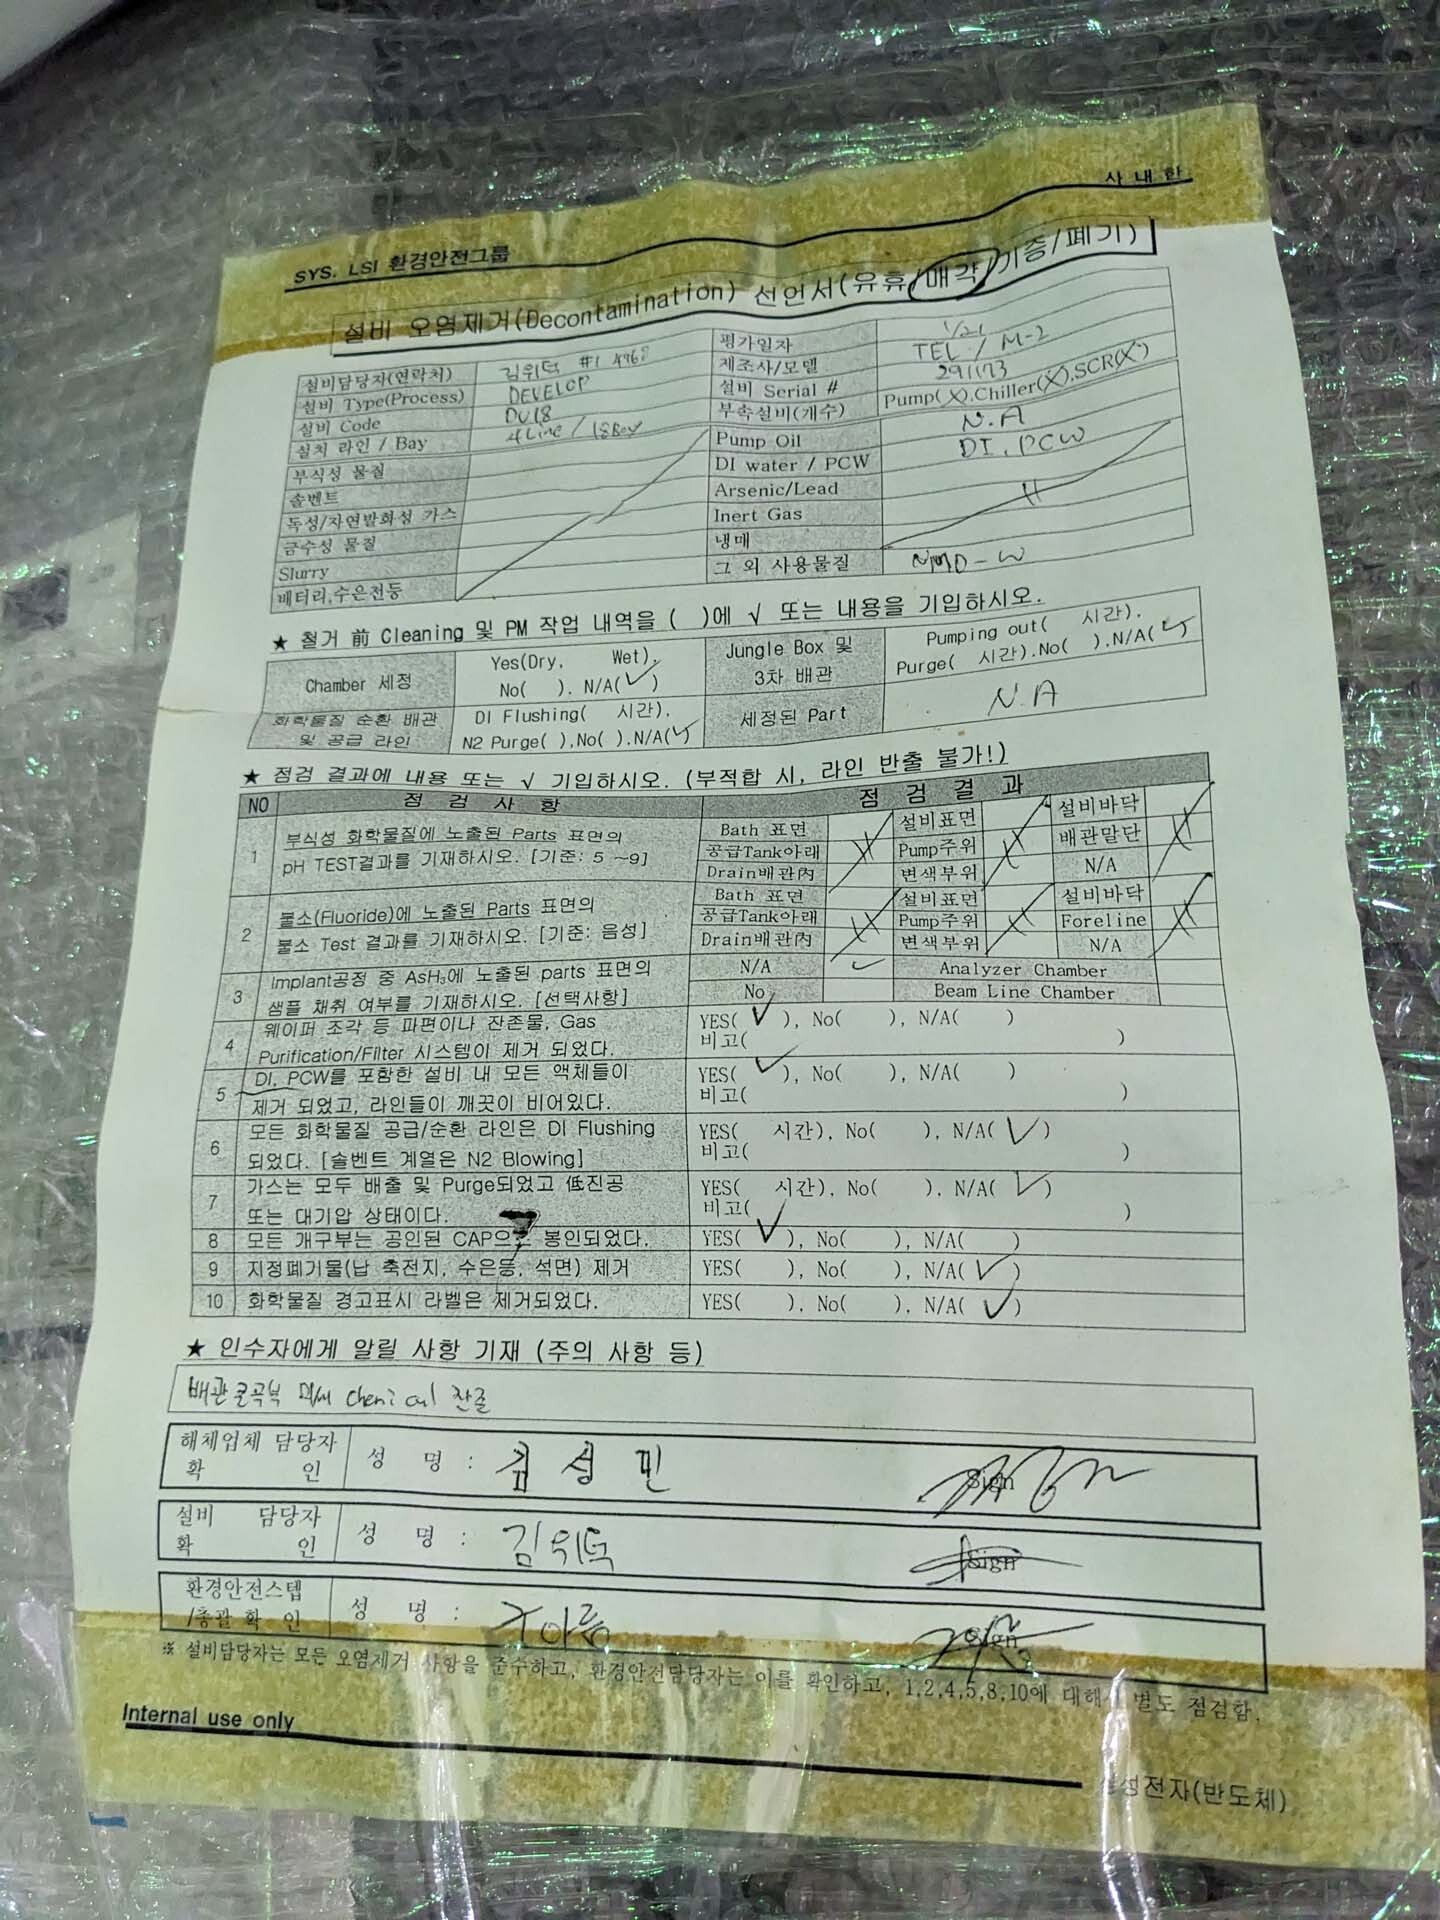 사 내 한
SYS. LSI 환경안전그룹
설비 오염제거(Decontamination) 선언서(유휴/매각/기증/폐기)
설비담당자(연락처) 김위덕 #1 4968 평가일자 1/21
설비 Type(Process) DEVELOP 제조사/모델 TEL / M-2
설비 Code DV18 설비 Serial # 291173
설치 라인 / Bay 4Line / 18Bay 부속설비(개수) Pump(X).Chiller(X).SCR(X)
부식성 물질 Pump Oil N.A
솔벤트 DI water / PCW DI, PCW
독성/자연발화성 가스 Arsenic/Lead
금수성 물질 Inert Gas
Slurry 냉매
배터리,수은전등 그 외 사용물질 NMD-W
★ 철거 前 Cleaning 및 PM 작업 내역을 ( )에 √ 또는 내용을 기입하시오.
Chamber 세정 Yes(Dry, Wet). Jungle Box 및 Pumping out( 시간).
No( ). N/A(✓) 3차 배관 Purge( 시간).No( ).N/A(✓)
화학물질 순환 배관 DI Flushing( 시간). 세정된 Part N.A
및 공급 라인 N2 Purge( ),No( ).N/A(✓)
★ 점검 결과에 내용 또는 √ 기입하시오. (부적합 시, 라인 반출 불가!)
NO 점 검 사 항 점 검 결 과
1 부식성 화학물질에 노출된 Parts 표면의 Bath 표면 설비표면 설비바닥
pH TEST결과를 기재하시오. [기준: 5 ~9] 공급Tank아래 Pump주위 배관말단
Drain배관內 변색부위 N/A
2 불소(Fluoride)에 노출된 Parts 표면의 Bath 표면 설비표면 설비바닥
불소 Test 결과를 기재하시오. [기준: 음성] 공급Tank아래 Pump주위 Foreline
Drain배관內 변색부위 N/A
3 Implant공정 중 AsH₃에 노출된 parts 표면의 N/A ✓ Analyzer Chamber
샘플 채취 여부를 기재하시오. [선택사항] No Beam Line Chamber
4 웨이퍼 조각 등 파편이나 잔존물, Gas YES( ✓ ), No( ), N/A( )
Purification/Filter 시스템이 제거 되었다. 비고( )
5 DI, PCW를 포함한 설비 내 모든 액체들이 YES( ✓ ), No( ), N/A( )
제거 되었고, 라인들이 깨끗이 비어있다. 비고( )
6 모든 화학물질 공급/순환 라인은 DI Flushing YES( 시간), No( ), N/A( ✓ )
되었다. [솔벤트 계열은 N2 Blowing] 비고( )
7 가스는 모두 배출 및 Purge되었고 低진공 YES( 시간), No( ). N/A( ✓ )
또는 대기압 상태이다. 비고( )
8 모든 개구부는 공인된 CAP으로 봉인되었다. YES( ✓ ), No( ), N/A( )
9 지정폐기물(납 축전지, 수은등, 석면) 제거 YES( ), No( ), N/A( ✓ )
10 화학물질 경고표시 라벨은 제거되었다. YES( ), No( ), N/A( ✓ )
★ 인수자에게 알릴 사항 기재 (주의 사항 등)
배관 굴곡부 미세 chemical 잔존
해체업체 담당자 성 명 : 김 성 민 Sign
확 인
설비 담당자 성 명 : 김위덕 Sign
확 인
환경안전스텝 성 명 : 주아름 Sign
/총괄 확 인
※ 설비담당자는 모든 오염제거 사항을 준수하고, 환경안전담당자는 이를 확인하고, 1,2,4,5,8,10에 대해서 별도 점검함.
Internal use only
삼성전자(반도체)